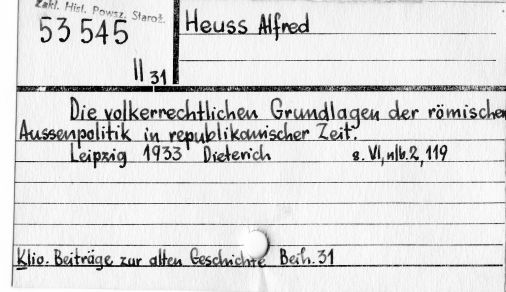 Zakł. Hist. Powsz. Staroż.
53 545
II 31
Heuss Alfred
Die volkerrechtlichen Grundlagen der römischen
Aussenpolitik in republikanischer Zeit.
Leipzig 1933 Dieterich s. VI, nlb. 2, 119
Klio. Beiträge zur alten Geschichte Beih. 31